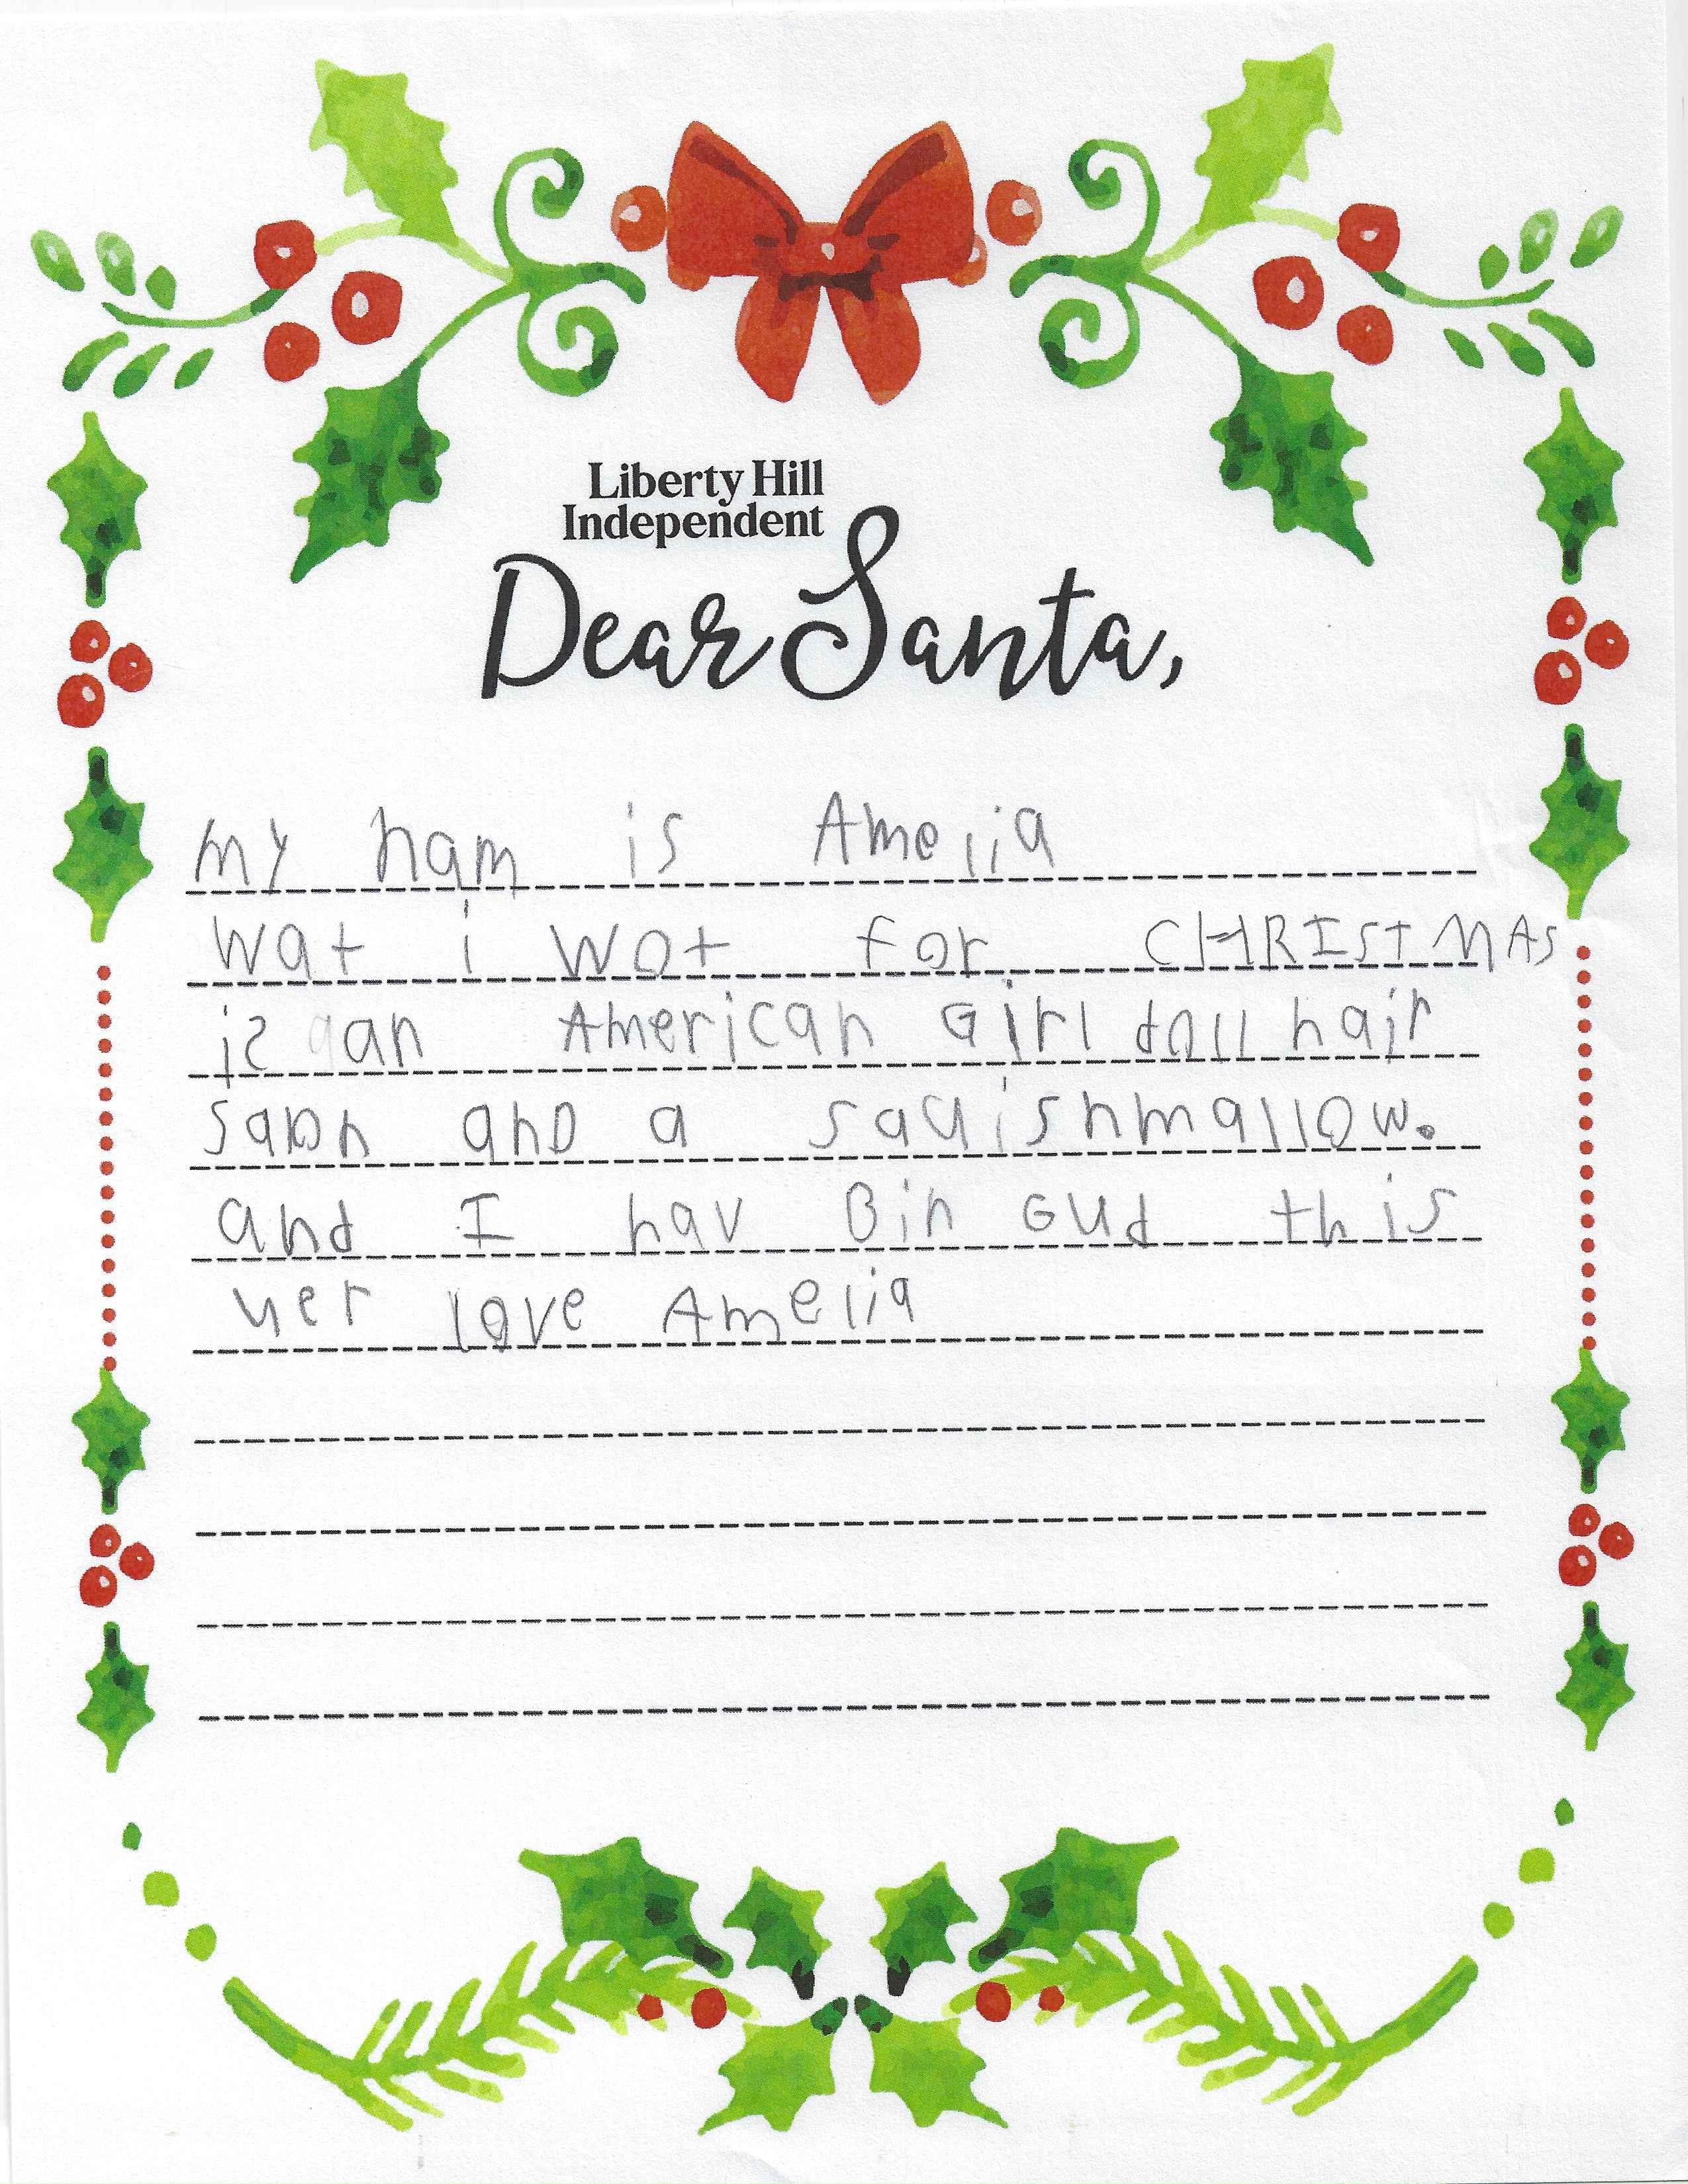 Liberty Hill
Independent
Dear Santa,
my nam is Amelia
wat i wot for CHRISTMAS
is an American Girl doll hair
salon and a squishmallow.
and I hav Bin Gud this
yer love Amelia